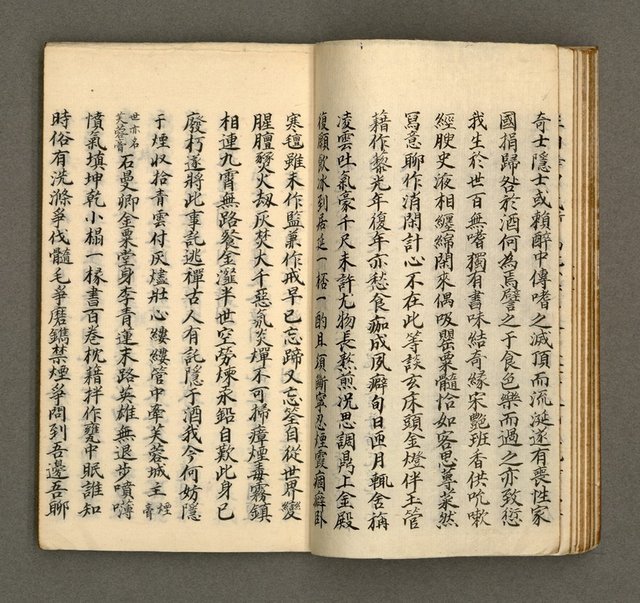 奇士隱士或賴醉中傳嗜之滅頂而流涎遂有喪性家
國捐歸咎於酒何為焉譬之于食色樂而過之亦致愆
我生於世百無嗜獨有書味結奇緣宋艷班香供吮嗽
經腴史液相纏綿閑來偶吸罌粟髓恰如客思蓴菜然
寫意聊作消閑計心不在此等談玄床頭金燈伴玉管
藉作黎光年復年亦愁食痂成夙癖旬日匝月輒舍捐
凌雲吐氣豪千尺未許尤物長熬煎况思調鼎上金殿
復願飲冰到居延一榼一酌且須斷寧忍煙霞痼癖卧
寒氊雖未作監兼作戒早已忘蹄又忘筌自從世界變
腥膻豩火劫灰焚大千惡氛炎燀不可掃瘴煙毒霧鎮
相連九霄無路餐金瀣半世空勞煉汞鉛自歎此身已
廢朽遂將此事託逃禪古人有託隱于酒我今何妨隱
于煙收拾青雲付灰燼壯心縷縷管中牽芙蓉城主煙膏
世亦名芙蓉膏石曼卿金粟堂身李青蓮末路英雄無退步噴嘷
憤氣填坤乾小榻一椽書百卷枕藉拌作甕中眠誰知
時俗有洗滌爭伐髓毛爭磨鐫禁煙爭問到吾邊吾聊